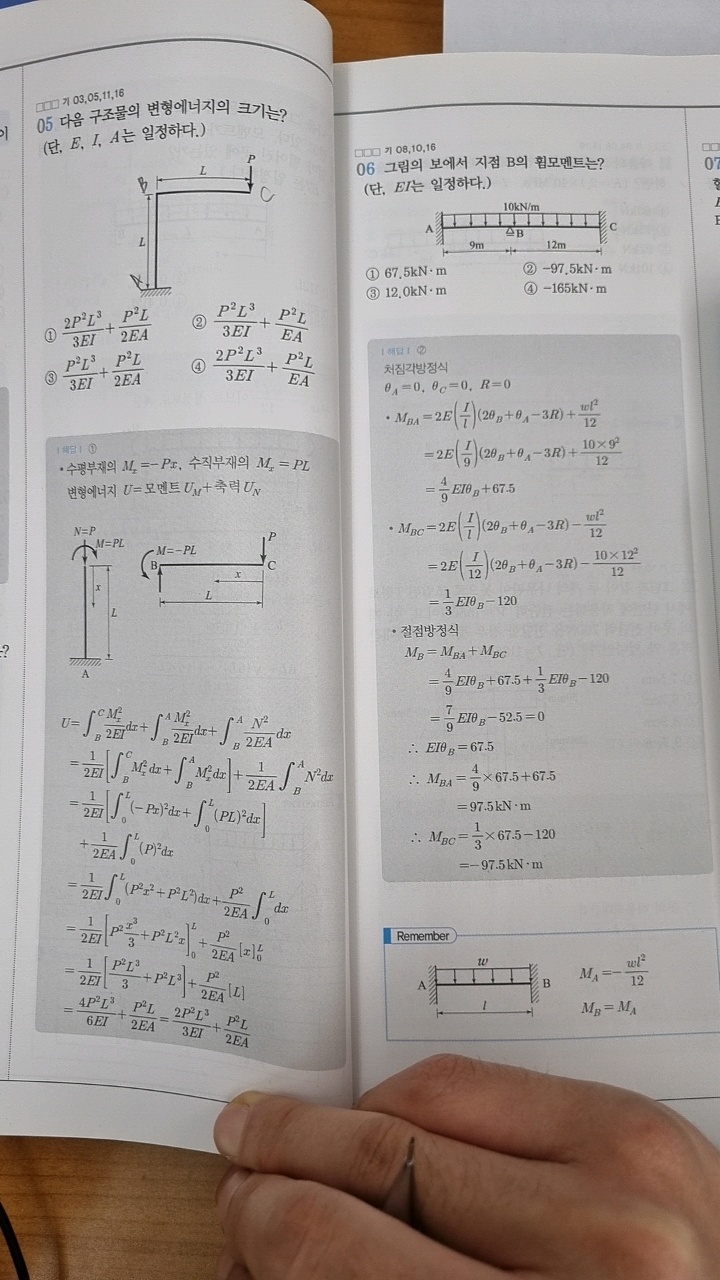 □□□ 기 03,05,11,16
05 다음 구조물의 변형에너지의 크기는?
(단, E, I, A는 일정하다.)
P
L
B
C
L
A
① 2P²L³/3EI + P²L/2EA
② P²L³/3EI + P²L/EA
③ P²L³/3EI + P²L/2EA
④ 2P²L³/3EI + P²L/EA
| 해답 | ①
• 수평부재의 Mₓ=-Px, 수직부재의 Mₓ=PL
변형에너지 U=모멘트 U_M+축력 U_N
N=P
M=PL
x
L
A
M=-PL
P
B
C
x
L
U=∫_B^C Mₓ²/2EI dx+∫_B^A Mₓ²/2EI dx+∫_B^A N²/2EA dx
=1/2EI[∫_B^C Mₓ²dx+∫_B^A Mₓ²dx]+1/2EA ∫_B^A N²dx
=1/2EI[∫_0^L(-Px)²dx+∫_0^L(PL)²dx]
+1/2EA ∫_0^L(P)²dx
=1/2EI ∫_0^L(P²x²+P²L²)dx+P²/2EA ∫_0^L dx
=1/2EI[P² x³/3+P²L²x]_0^L+P²/2EA [x]_0^L
=1/2EI[P²L³/3+P²L³]+P²/2EA [L]
=4P²L³/6EI+P²L/2EA=2P²L³/3EI+P²L/2EA
□□□ 기 08,10,16
06 그림의 보에서 지점 B의 휨모멘트는?
(단, EI는 일정하다.)
10kN/m
A
B
C
9m
12m
① 67.5kN·m
② -97.5kN·m
③ 12.0kN·m
④ -165kN·m
| 해답 | ②
처짐각방정식
θ_A=0, θ_C=0, R=0
• M_BA=2E(I/l)(2θ_B+θ_A-3R)+wl²/12
=2E(I/9)(2θ_B+θ_A-3R)+10×9²/12
=4/9 EIθ_B+67.5
• M_BC=2E(I/l)(2θ_B+θ_A-3R)-wl²/12
=2E(I/12)(2θ_B+θ_A-3R)-10×12²/12
=1/3 EIθ_B-120
• 절점방정식
M_B=M_BA+M_BC
=4/9 EIθ_B+67.5+1/3 EIθ_B-120
=7/9 EIθ_B-52.5=0
∴ EIθ_B=67.5
∴ M_BA=4/9×67.5+67.5
=97.5kN·m
∴ M_BC=1/3×67.5-120
=-97.5kN·m
Remember
w
A
B
l
M_A=-wl²/12
M_B=M_A
07